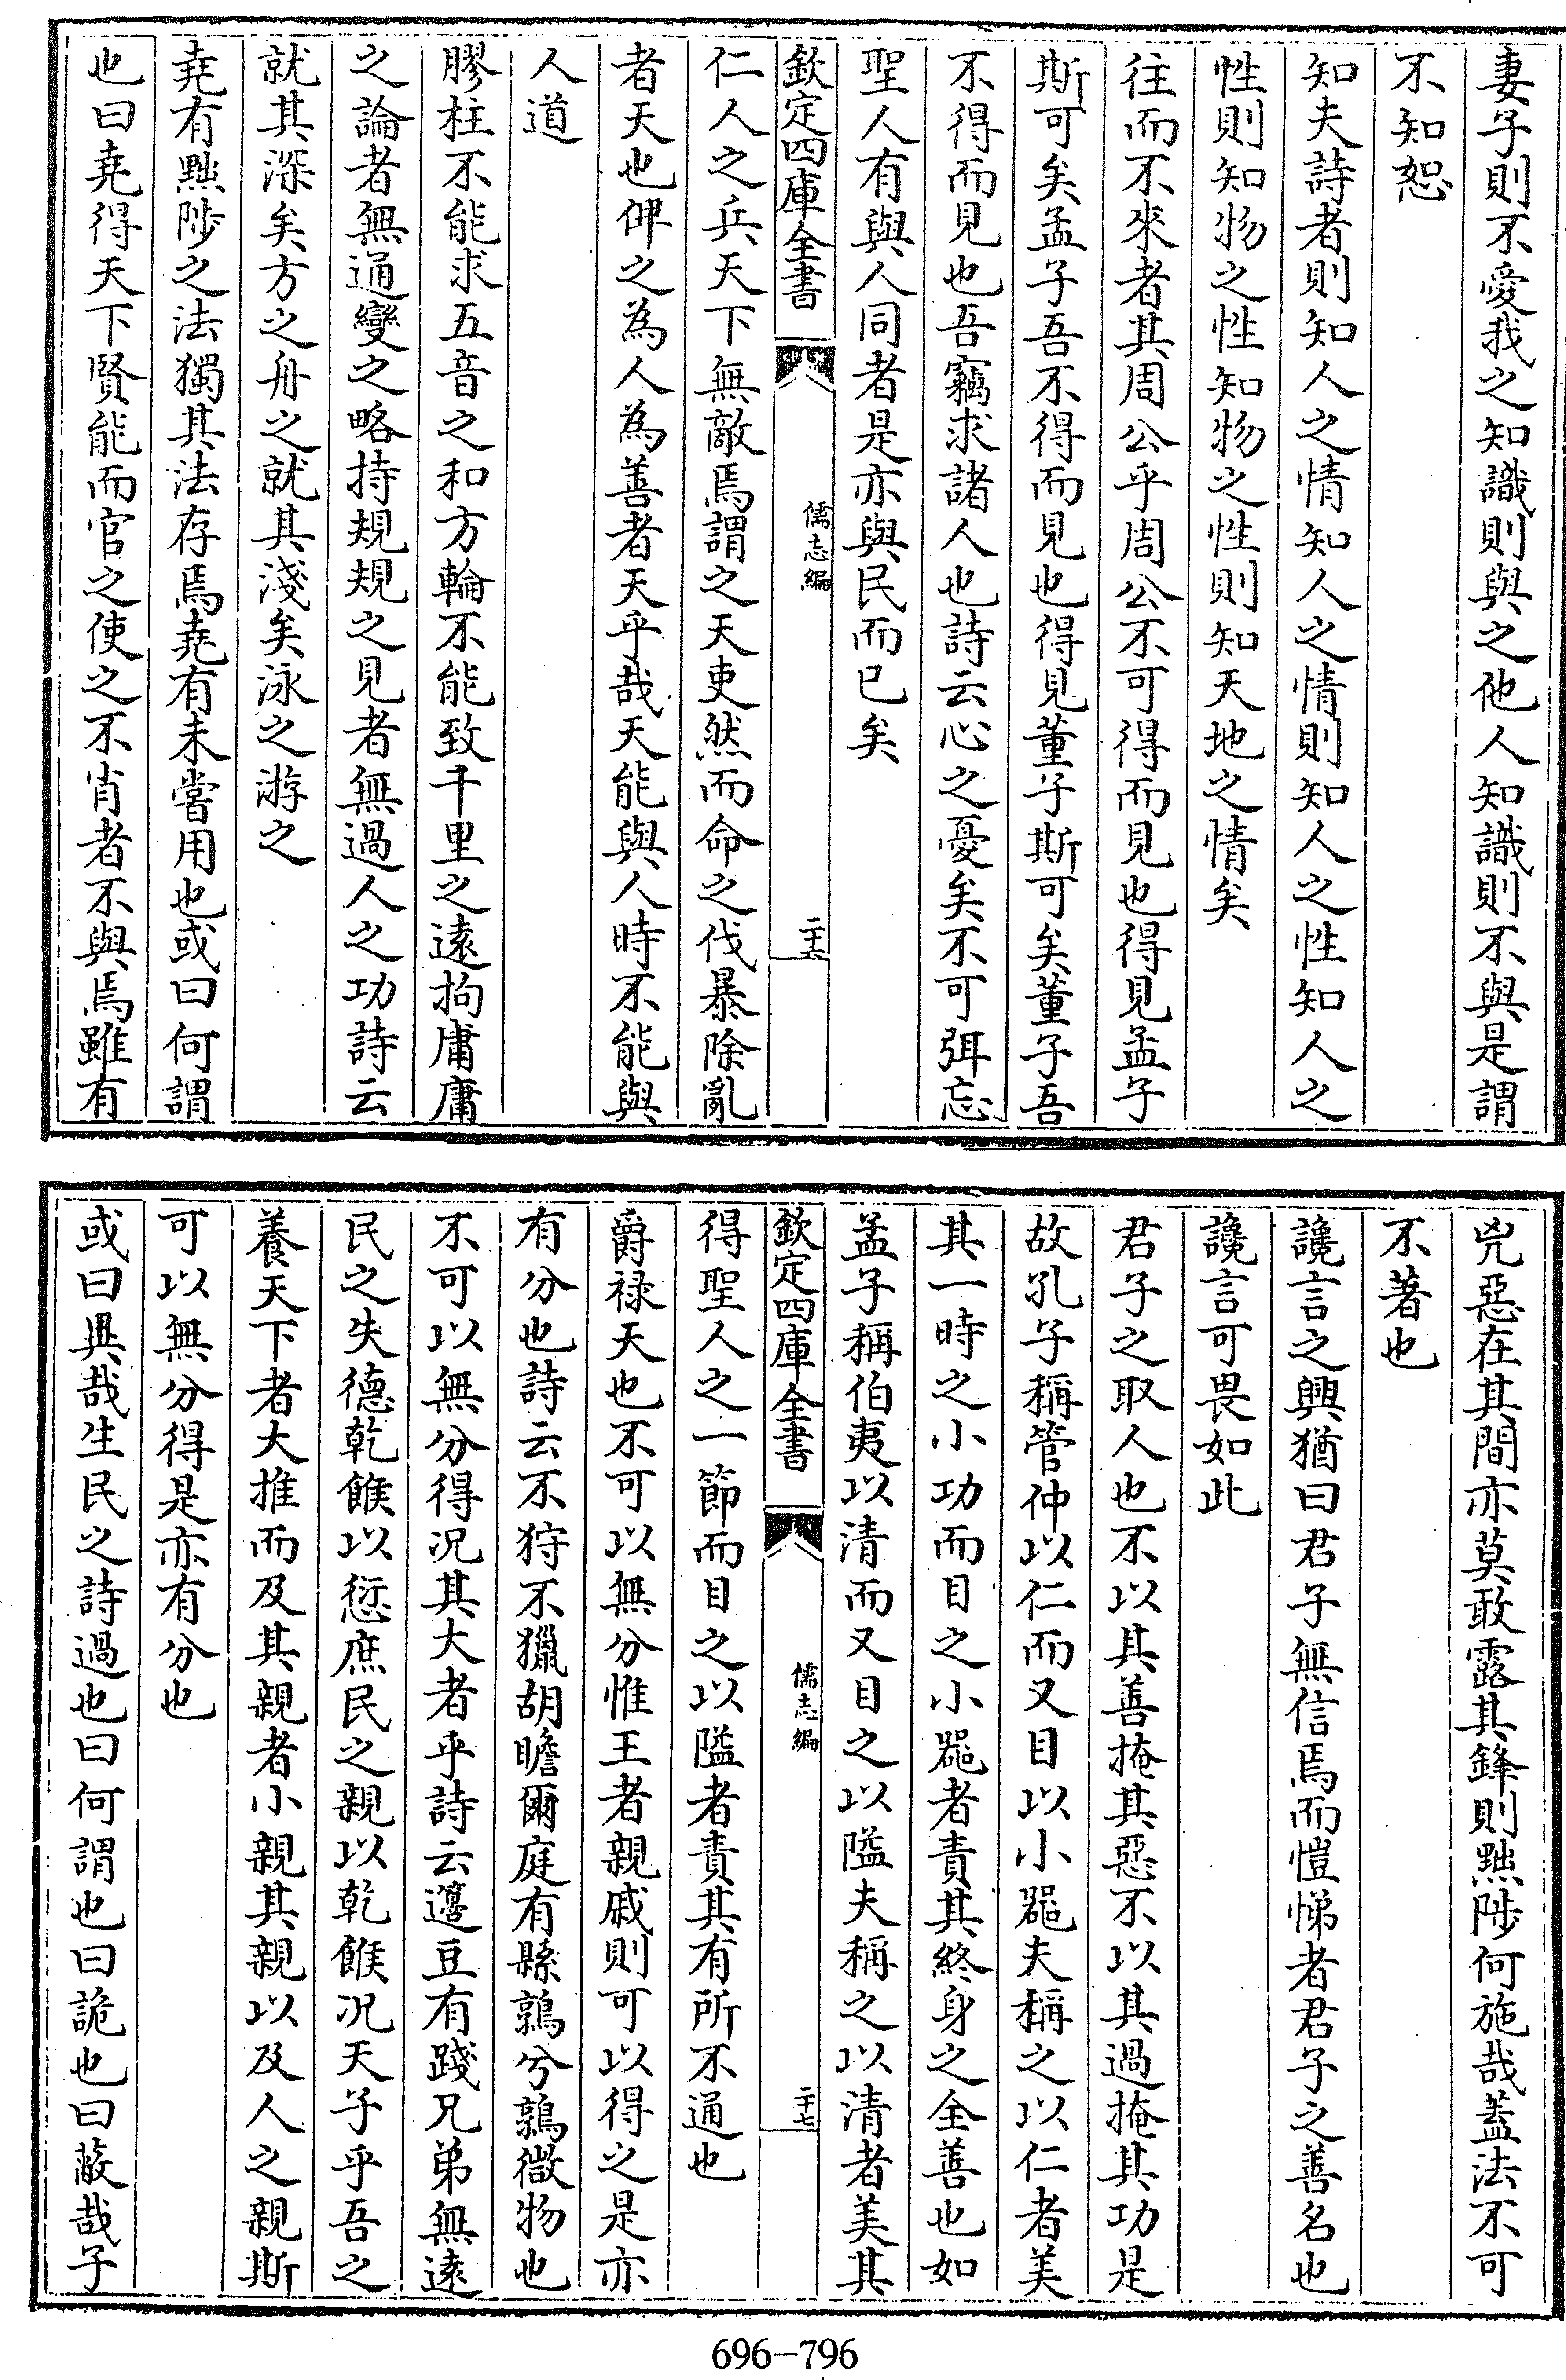 妻子則不愛我之知識則與之他人知識則不與是謂
不知恕
知夫詩者則知人之情知人之情則知人之性知人之
性則知物之性知物之性則知天地之情矣
往而不來者其周公乎周公不可得而見也得見孟子
斯可矣孟子吾不得而見也得見董子斯可矣董子吾
不得而見也吾竊求諸人也詩云心之憂矣不可弭忘
聖人有與人同者是亦與民而已矣
欽定四庫全書
儒志編
二十六
仁人之兵天下無敵焉謂之天吏然而命之伐暴除亂
者天也俾之為人為善者天乎哉天能與人時不能與
人道
膠柱不能求五音之和方輪不能致千里之遠拘庸庸
之論者無通變之略持規規之見者無過人之功詩云
就其深矣方之舟之就其淺矣泳之游之
堯有黜陟之法獨其法存焉堯有未嘗用也或曰何謂
也曰堯得天下賢能而官之使之不肖者不與焉雖有
兇惡在其間亦莫敢露其鋒則黜陟何施哉蓋法不可
不著也
讒言之興猶曰君子無信焉而愷悌者君子之善名也
讒言可畏如此
君子之取人也不以其善掩其惡不以其過掩其功是
故孔子稱管仲以仁而又目以小器夫稱之以仁者美
其一時之小功而目之小器者責其終身之全善也如
孟子稱伯夷以清而又目之以隘夫稱之以清者美其
欽定四庫全書
儒志編
二十七
得聖人之一節而目之以隘者責其有所不通也
爵祿天也不可以無分惟王者親戚則可以得之是亦
有分也詩云不狩不獵胡瞻爾庭有縣鶉兮鶉微物也
不可以無分得况其大者乎詩云籩豆有踐兄弟無遠
民之失德乾餱以愆庶民之親以乾餱况天子乎吾之
養天下者大推而及其親者小親其親以及人之親斯
可以無分得是亦有分也
或曰異哉生民之詩過也曰何謂也曰詭也曰蔽哉子
696-796